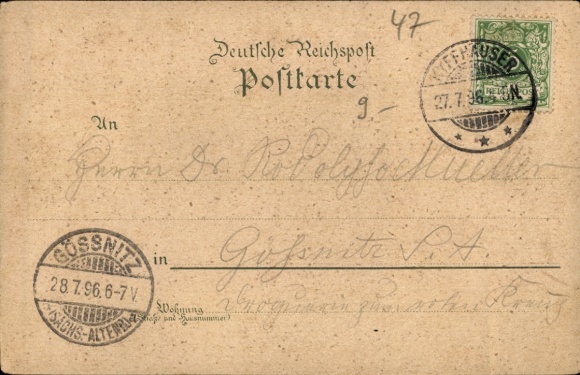 47
Deutsche Reichspost
Postkarte
9.-
KYFFHÄUSER
27.7.96
REICHSPOST
An
Herrn Dr. Rodolfo Mueller
in Gössnitz S. A.
Wohnung
(Straße und Hausnummer)
zum roten Kreuz
GÖSSNITZ
28.7.96.6-7V.
(SACHS.-ALTENB.)